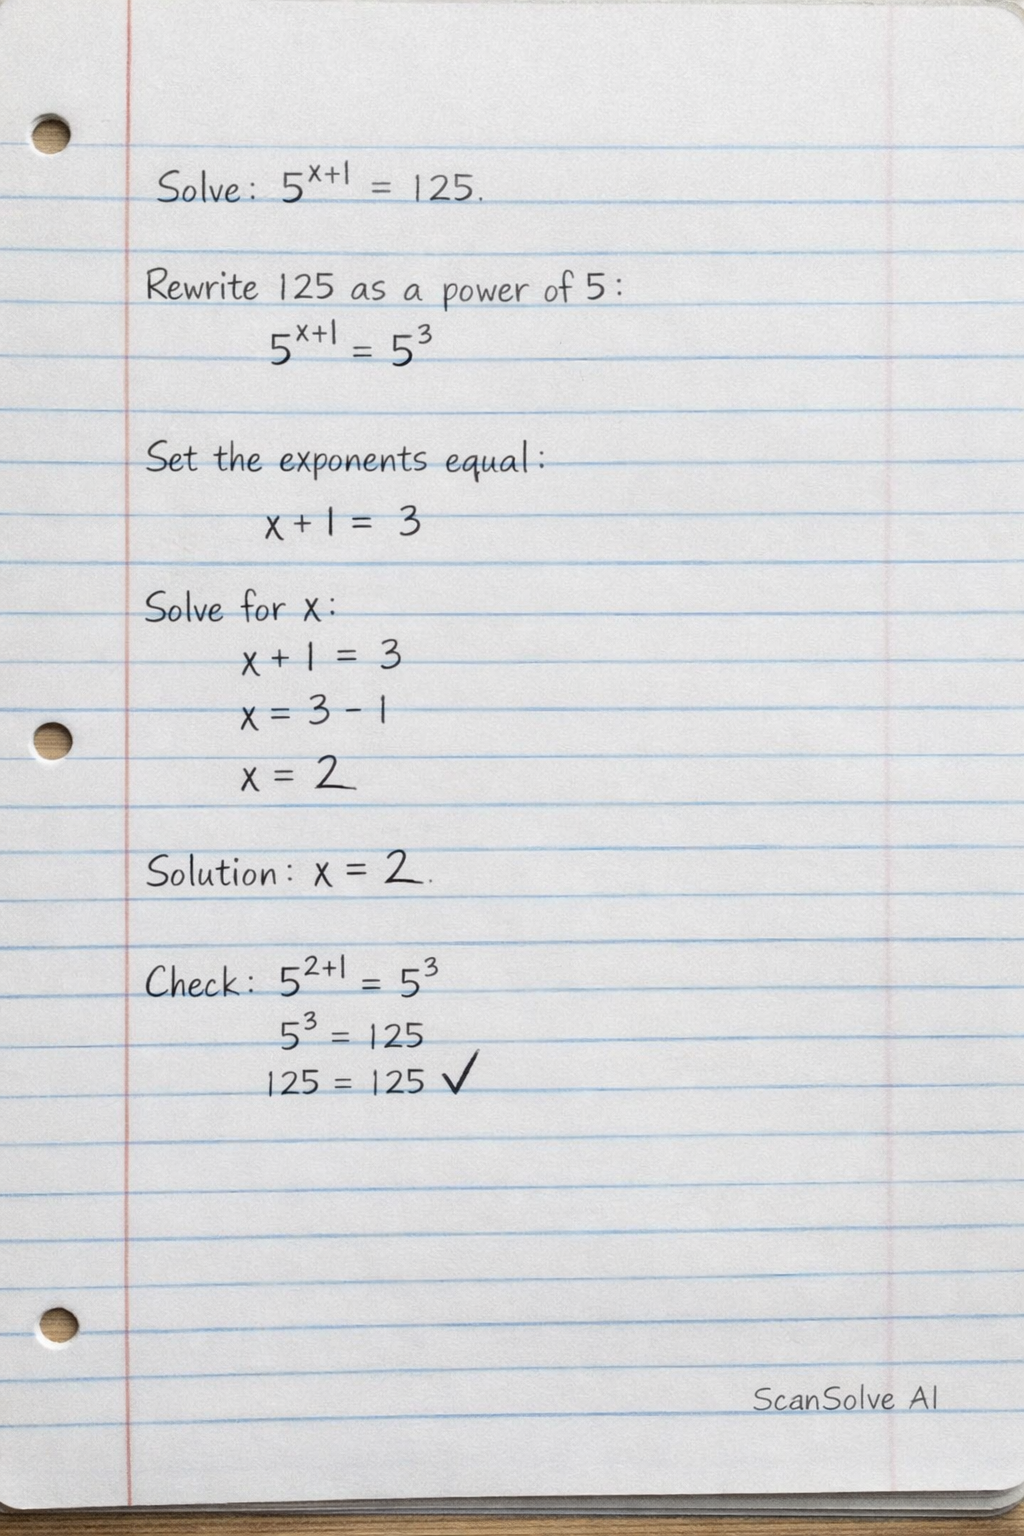 Solve: 5^{x+1} = 125.
Rewrite 125 as a power of 5:
5^{x+1} = 5^3
Set the exponents equal:
x + 1 = 3
Solve for x:
x + 1 = 3
x = 3 - 1
x = 2
Solution: x = 2.
Check: 5^{2+1} = 5^3
5^3 = 125
125 = 125 ✓
ScanSolve AI